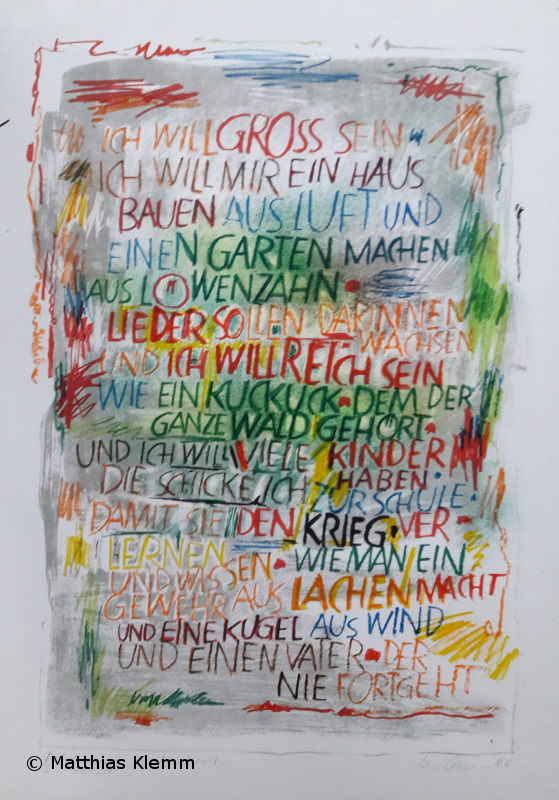 ICH WILL GROSS SEIN
ICH WILL MIR EIN HAUS
BAUEN AUS LUFT UND
EINEN GARTEN MACHEN
AUS LÖWENZAHN •
LIEDER SOLLEN DARINNEN
WACHSEN
UND ICH WILL REICH SEIN
WIE EIN KUCKUCK • DEM DER
GANZE WALD GEHÖRT •
UND ICH WILL VIELE KINDER
HABEN •
DIE SCHICKE ICH
ZUR SCHULE •
DAMIT SIE DEN KRIEG • VER-
LERNEN
UND WISSEN • WIE MAN EIN
GEWEHR AUS LACHEN MACHT
UND EINE KUGEL AUS WIND
UND EINEN VATER • DER
NIE FORTGEHT
© Matthias Klemm